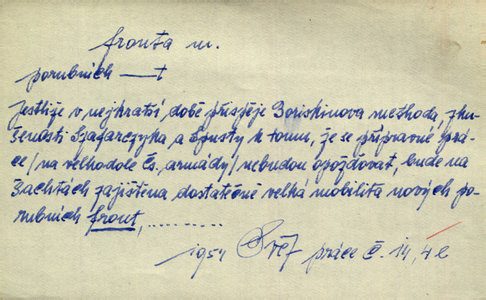 fronta m.
porubních —t
Jestliže v nejkratší době přispěje Boriskinova methoda, zku-
šenosti Szafarczyka a Spusty k tomu, že se přípravné prá-
ce /na velkodole Čs. armády/ nebudou opožďovat, bude na
šachtách zajištěna dostatečně velká mobilita nových po-
rubních front, .........
1954 Svět práce č. 14, 4